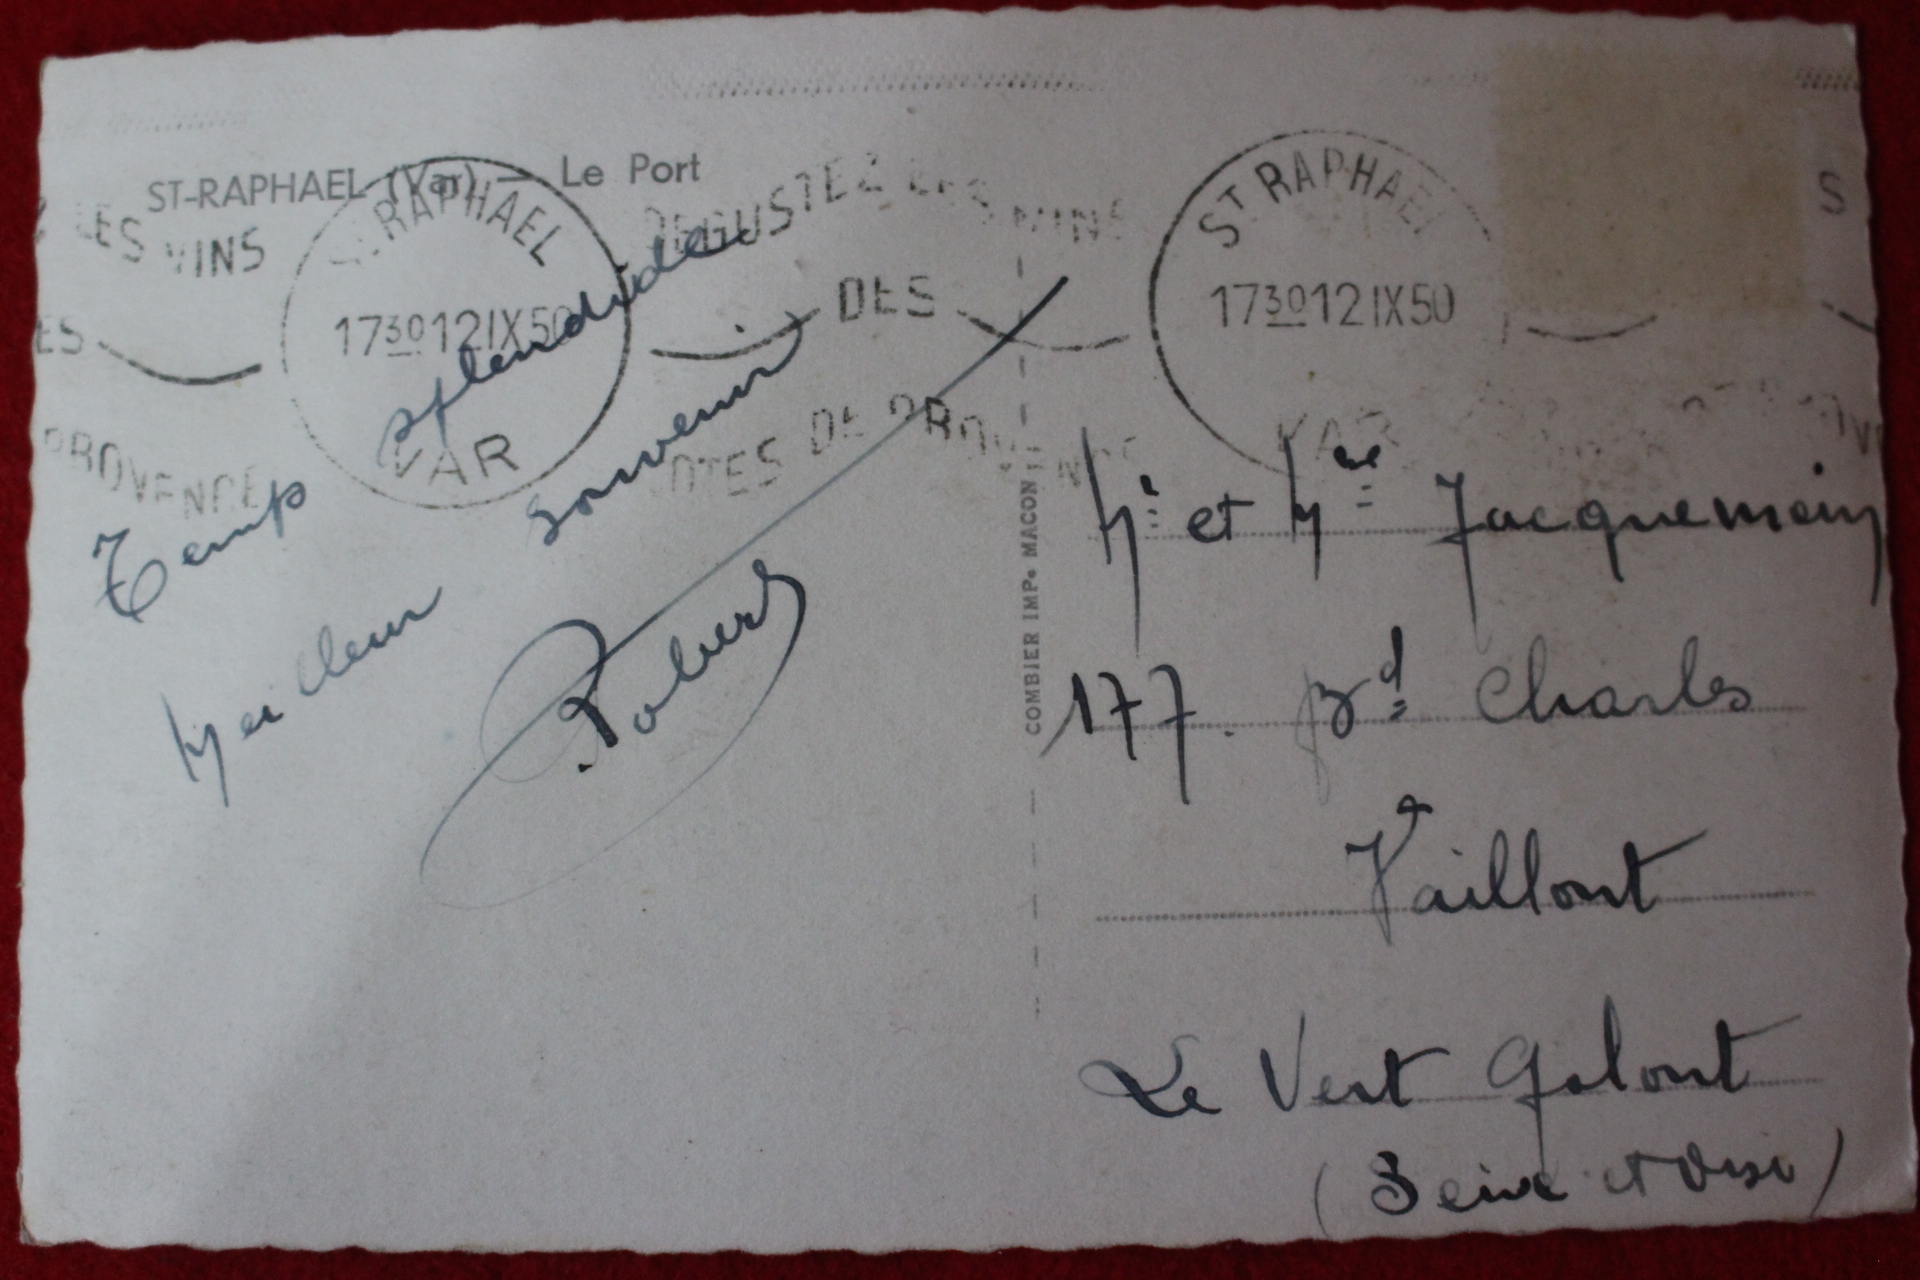 ST-RAPHAEL (Var) — Le Port
LES VINS
ES
PROVENCE
ST RAPHAEL
17 30 12 IX 50
VAR
DEGUSTEZ LES VINS
DES
COTES DE PROVENCE
ST RAPHAEL
17 30 12 IX 50
VAR
S
Temp splendide
Meilleur souvenir
Robert
COMBIER IMP. MACON
Mr et Mme Jacquemain
177. Bd Charles
Vaillant
Le Vert Galant
(Seine et Oise)